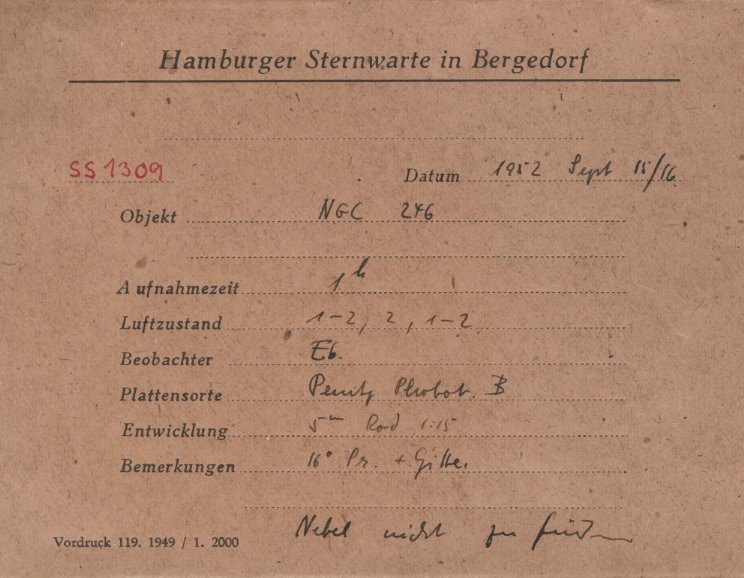 Hamburger Sternwarte in Bergedorf
SS 1309
Datum 1952 Sept 15/16
Objekt NGC 246
Aufnahmezeit 1h
Luftzustand 1-2, 2, 1-2
Beobachter Eb.
Plattensorte Perutz Phobot. B
Entwicklung 5m Rod 1:15
Bemerkungen 16° Pr. + Gitter
Nebel nicht zu finden
Vordruck 119. 1949 / 1. 2000